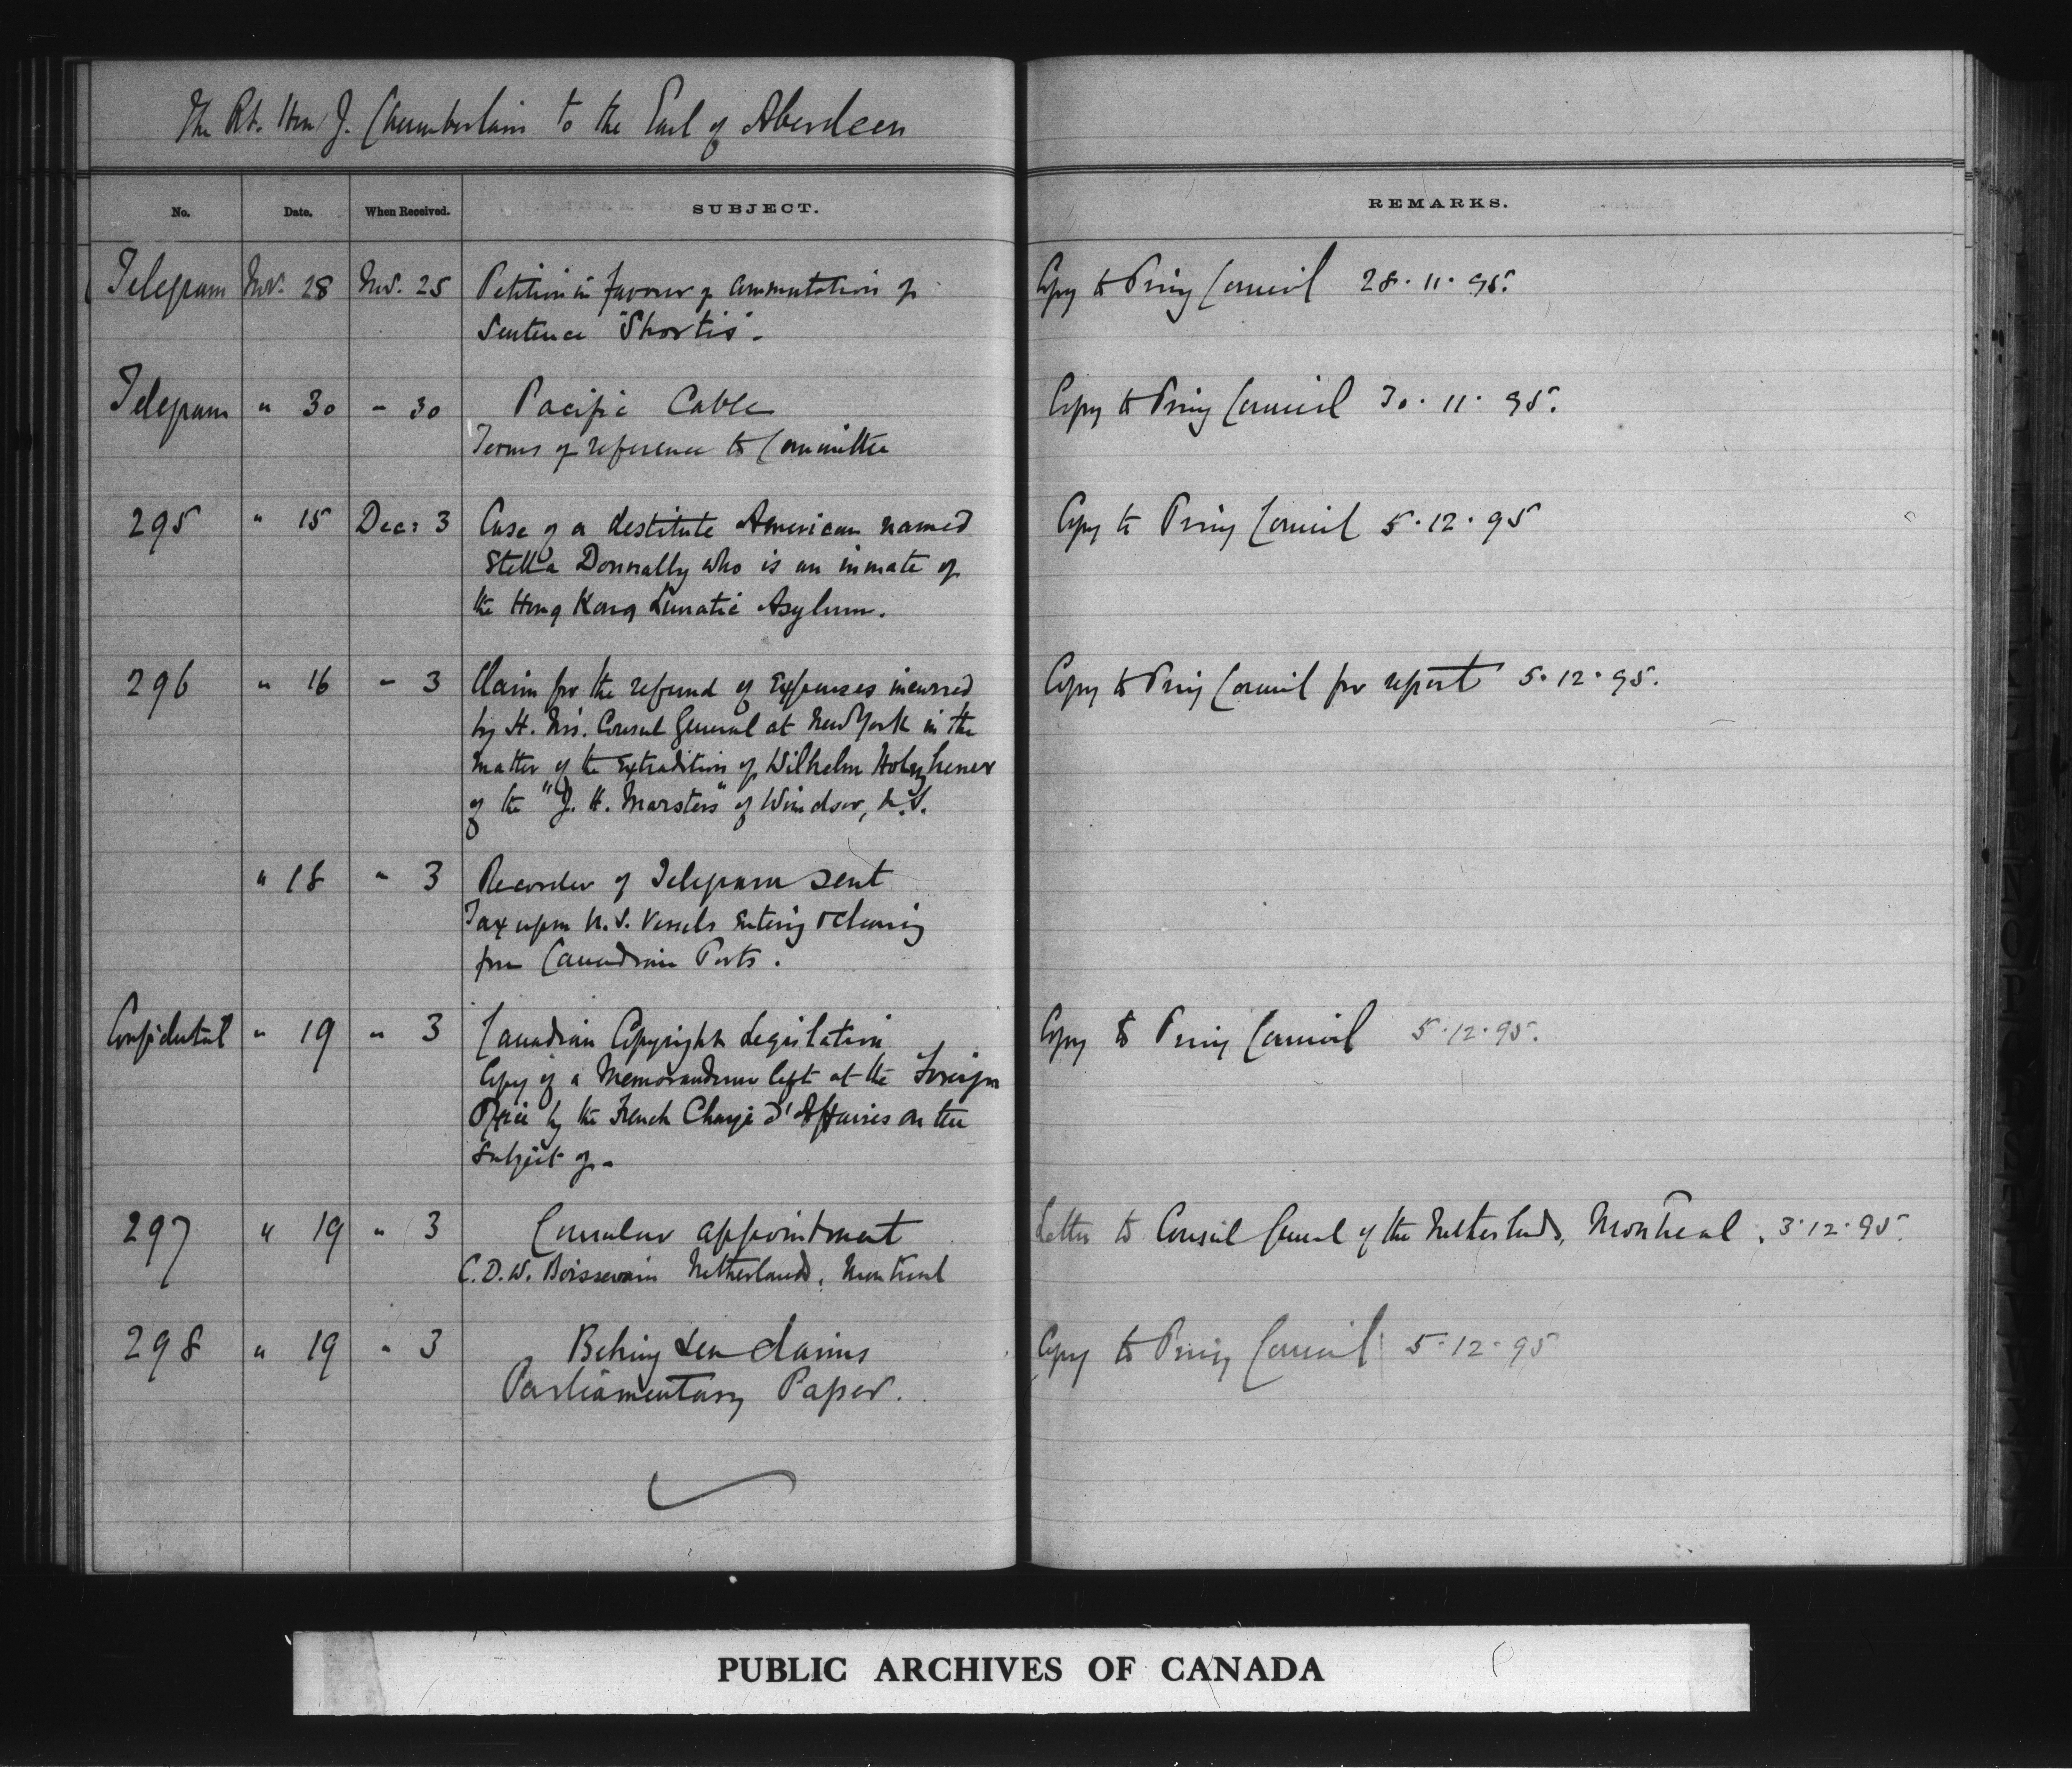 The Rt. Hon J. Chamberlain to the Earl of Aberdeen
No. Date. When Received. SUBJECT. REMARKS.
Telegram Nov. 28 Nov. 25 Petition in favour of commutation of Copy to Privy Council 28.11.95.
Sentence "Shortis".
Telegram " 30 " 30 Pacific Cable Copy to Privy Council 30.11.95.
Terms of reference to Committee
295 " 15 Dec: 3 Case of a destitute American named Copy to Privy Council 5.12.95
Stella Donnally who is an inmate of
the Hong Kong Lunatic Asylum.
296 " 16 " 3 Claim for the refund of Expenses incurred Copy to Privy Council for report 5.12.95.
by H. M's. Consul General at New York in the
matter of the extradition of Wilhelm
of the "J. H. Marsters" of Windsor, N.S.
" 18 " 3 Recorder of Telegram sent
Tax upon U.S. Vessels entering & clearing
from Canadian Ports.
Confidential " 19 " 3 Canadian Copyright Legislation Copy to Privy Council 5.12.95.
Copy of a Memorandum left at the Foreign
Office by the French Chargé d'Affaires on the
subject of -
297 " 19 " 3 Consular appointment Letter to Consul General of the Netherlands, Montreal, 3.12.95.
C.D.W. Boissevain Netherlands, Montreal
298 " 19 " 3 Behring Sea Claims Copy to Privy Council 5.12.95
Parliamentary Paper.
PUBLIC ARCHIVES OF CANADA